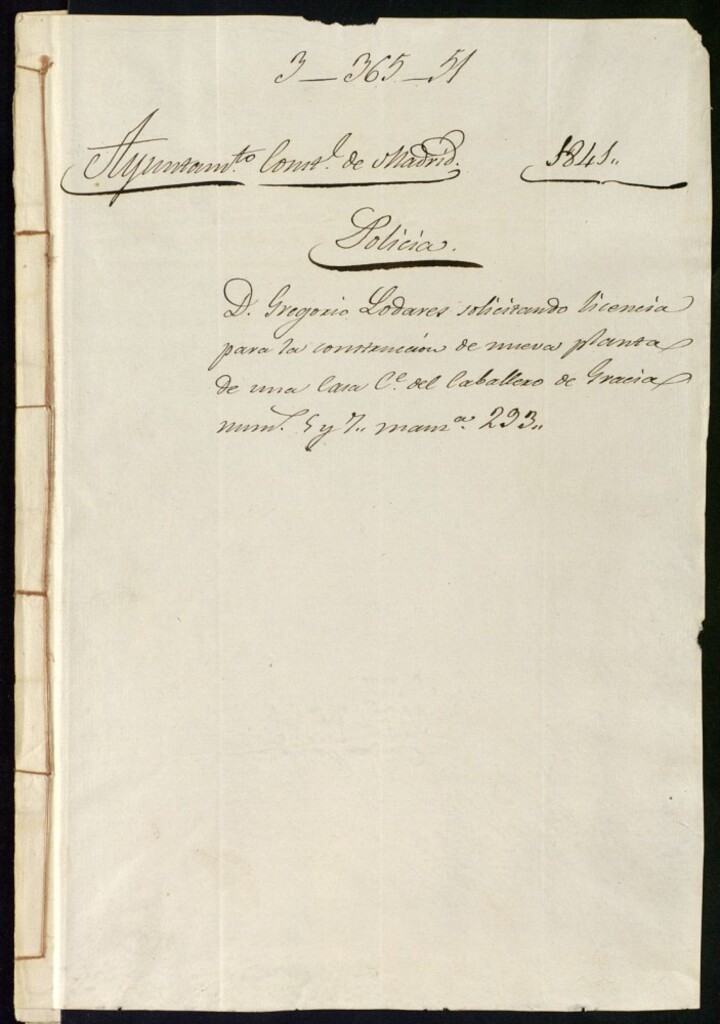 3—365—51
Ayuntam.to Const.l de Madrid. 1841..
Policia.
D. Gregorio Lodares solicitando licencia
para la construccion de nueva planta
de una Casa C.e del Caballero de Gracia
num.s 5 y 7.. manz.a 293..